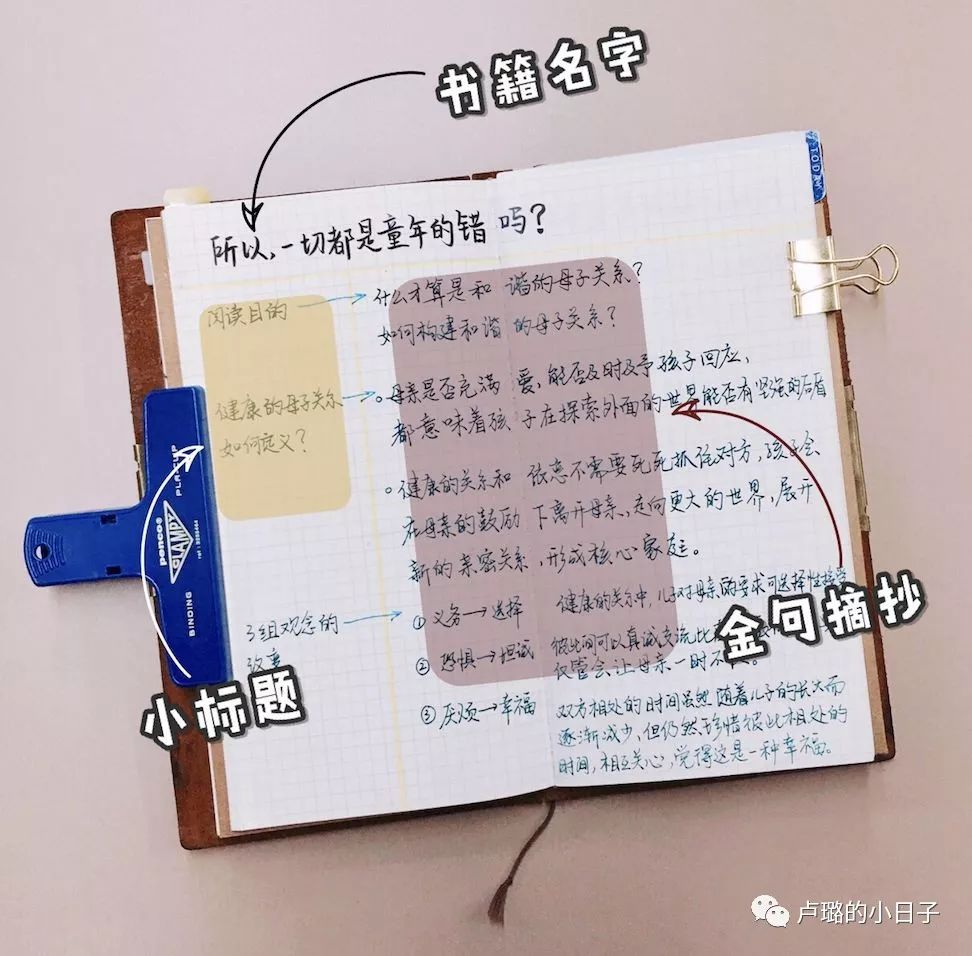 书籍名字
TODAY
所以,一切都是童年的错吗?
阅读目的
什么才算是和谐的母子关系?
如何构建和谐的母子关系?
健康的母子关系
如何定义?
。母亲是否充满爱,能否及时给予孩子回应,
都意味着孩子在探索外面的世界能否有坚强的后盾
。健康的关系和依恋不需要死死抓住对方,孩子会
在母亲的鼓励下离开母亲,走向更大的世界,展开
新的亲密关系,形成核心家庭。
3组观念的
改变
①义务→选择
健康的关系中,儿子对母亲的要求可选择性接受
②恐惧→坦诚
彼此间可以真诚交流
仅管会让母亲一时不
③厌烦→幸福
双方相处的时间虽然随着儿子的长大而
逐渐减少,但仍然珍惜彼此相处的
时间,相互关心,觉得这是一种幸福。
小标题
金句摘抄
penco
CLAMPY
BINDING
卢璐的小日子